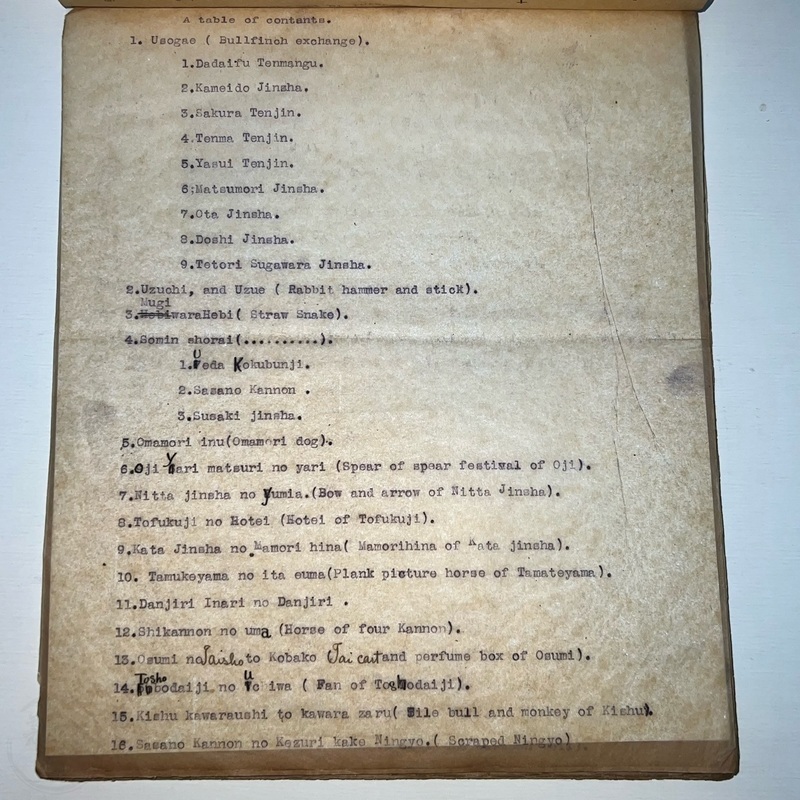 A table of contents.
1. Usogae ( Bullfinch exchange).
1.Dadaifu Tenmangu.
2.Kameido Jinsha.
3.Sakura Tenjin.
4.Tenma Tenjin.
5.Yasui Tenjin.
6:Matsumori Jinsha.
7.Ota Jinsha.
8.Doshi Jinsha.
9.Tetori Sugawara Jinsha.
2.Uzuchi, and Uzue ( Rabbit hammer and stick).
Mugi
3.HebiwaraHebi( Straw Snake).
4.Somin shorai(..........).
1.Ueda Kokubunji.
2.Sasano Kannon .
3.Susaki jinsha.
5.Omamori inu(Omamori dog).
6.Oji Yari matsuri no yari (Spear of spear festival of Oji).
7.Nitta jinsha no Yumia.(Bow and arrow of Nitta Jinsha).
8.Tofukuji no Hotei (Hotei of Tofukuji).
9.Kata Jinsha no Mamori hina( Mamorihina of Kata jinsha).
10. Tamukeyama no ita euma(Plank picture horse of Tamateyama).
11.Danjiri Inari no Danjiri .
12.Shikannon no uma (Horse of four Kannon).
13.Osumi no Taisha to Kobako (Tai cart and perfume box of Osumi).
14.Toshobodaiji no Uchiwa ( Fan of Toshodaiji).
15.Kishu kawaraushi to kawara zaru( Tile bull and monkey of Kishu).
16.Sasano Kannon no Kezuri kake Ningyo.( Scraped Ningyo).